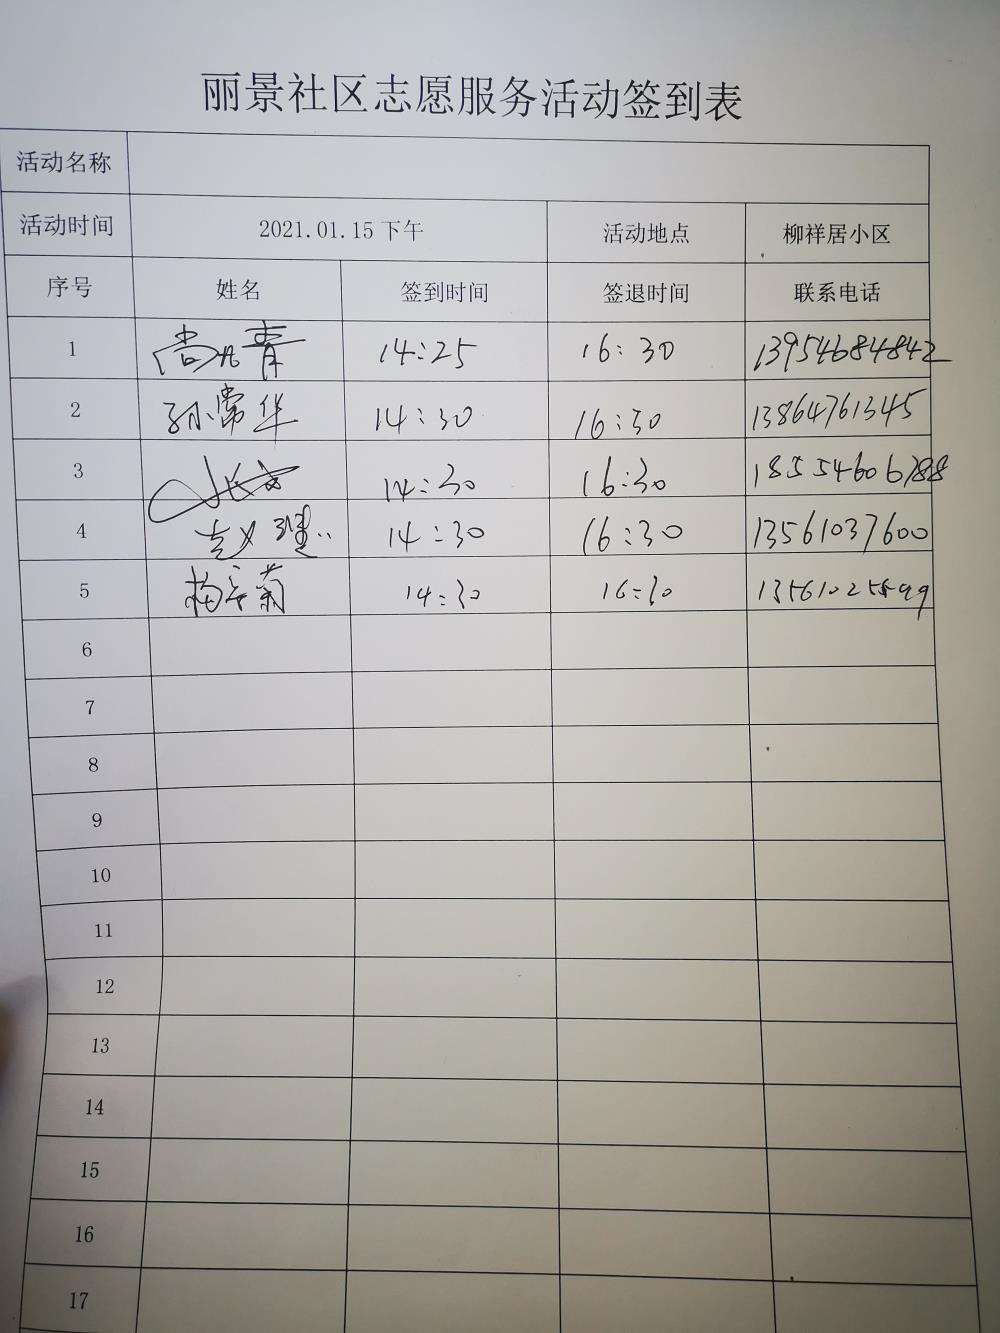 丽景社区志愿服务活动签到表
活动名称
活动时间 2021.01.15下午 活动地点 柳祥居小区
序号 姓名 签到时间 签退时间 联系电话
1 尚 青 14:25 16:30 13954684842
2 孙常华 14:30 16:30 13864761345
3 14:30 16:30 18554606788
4 赵 14:30 16:30 13561037600
5 杨 菊 14:30 16:30
6
7
8
9
10
11
12
13
14
15
16
17